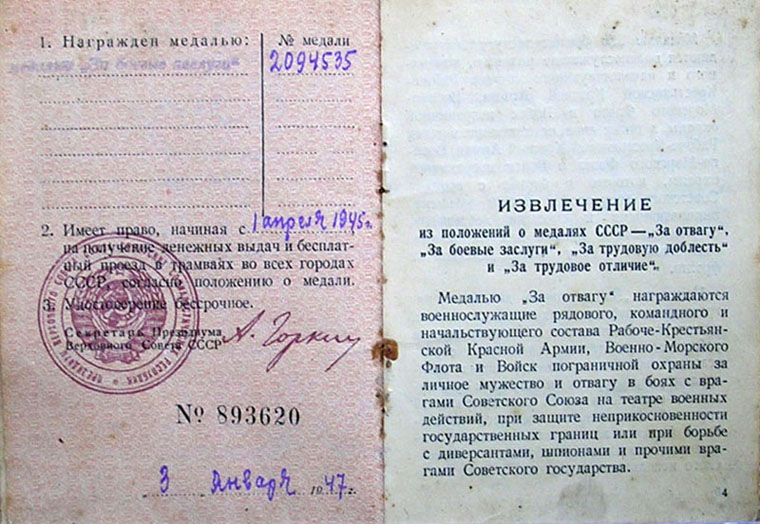 1. Награжден медалью:
№ медали
медалью „За боевые заслуги“
2094535
2. Имеет право, начиная с 1 апреля 1945 г.
на получение денежных выдач и бесплат-
ный проезд в трамваях во всех городах
СССР, согласно положению о медали.
3. Удостоверение бессрочное.
Секретарь Президиума
Верховного Совета СССР
А. Горкин
№ 893620
3 января 1947 г.
ИЗВЛЕЧЕНИЕ
из положений о медалях СССР — „За отвагу“,
„За боевые заслуги“, „За трудовую доблесть“
и „За трудовое отличие“.
Медалью „За отвагу“ награждаются
военнослужащие рядового, командного и
начальствующего состава Рабоче-Крестьян-
ской Красной Армии, Военно-Морского
Флота и Войск пограничной охраны за
личное мужество и отвагу в боях с вра-
гами Советского Союза на театре военных
действий, при защите неприкосновенности
государственных границ или при борьбе
с диверсантами, шпионами и прочими вра-
гами Советского государства.
4